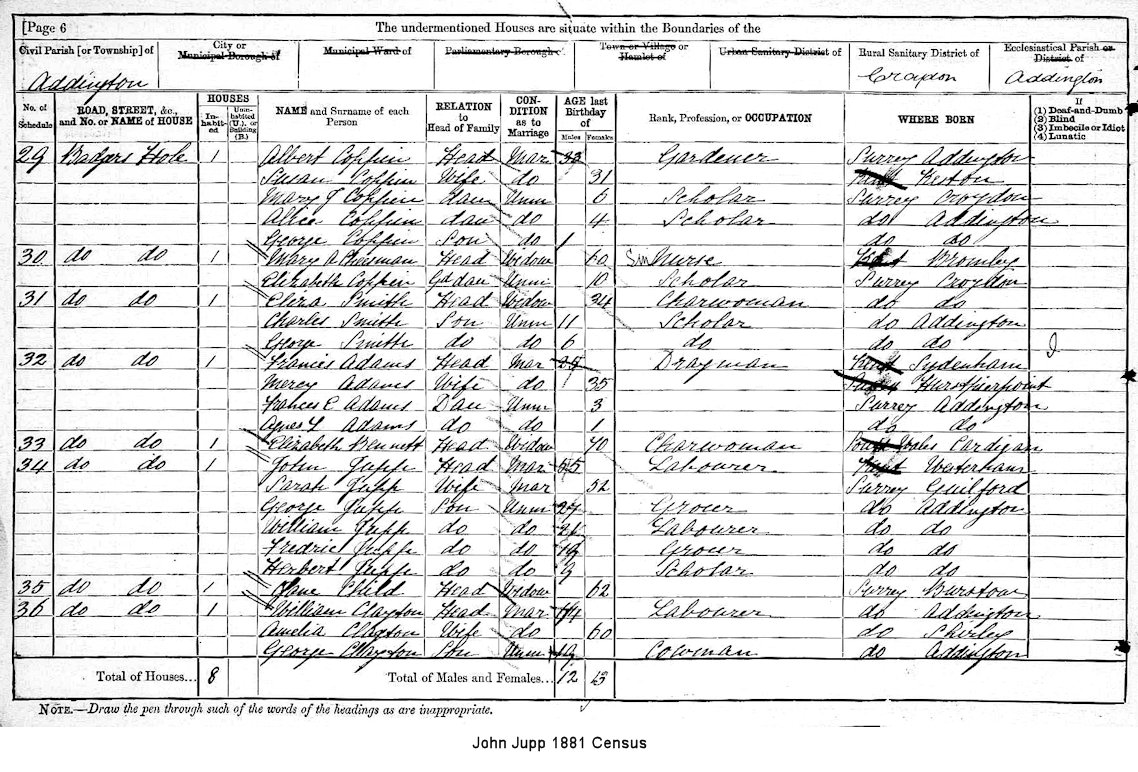 [Page 6 The undermentioned Houses are situate within the Boundaries of the
Civil Parish [or Township] of City or Municipal Borough of Municipal Ward of Parliamentary Borough of Town or Village or Hamlet of Urban Sanitary District of Rural Sanitary District of Ecclesiastical Parish or District of
Addington Croydon Addington
No. of Schedule ROAD, STREET, &c., and No. or NAME of HOUSE HOUSES Inhabited Uninhabited (U.), or Building (B.) NAME and Surname of each Person RELATION to Head of Family CONDITION as to Marriage AGE last Birthday of Males Females Rank, Profession, or OCCUPATION WHERE BORN If (1) Deaf-and-Dumb (2) Blind (3) Imbecile or Idiot (4) Lunatic
29 Badgers Hole 1 Albert Coppin Head Mar 33 Gardener Surrey Addington
Susan Coppin Wife do 31 Kent Keston
Mary J Coppin dau Unm 6 Scholar Surrey Croydon
Alice Coppin dau do 4 Scholar do Addington
George Coppin Son do 1 do do
30 do do 1 Mary A Head Widow 60 Nurse Kent Bromley
Elizabeth Coppin Gd dau Unm 10 Scholar Surrey Croydon
31 do do 1 Clara Smith Head Widow 34 Charwoman do do
Charles Smith Son Unm 11 Scholar do Addington
George Smith do do 6 do do do
32 do do 1 Francis Adams Head Mar Drayman Kent Sydenham
Mercy Adams Wife do 35 Hurstpierpoint
Frances E Adams Dau Unm 3 Surrey Addington
Agnes L Adams do do 1 do do
33 do do 1 Elizabeth Bennett Head Widow 40 Charwoman South Wales Cardigan
34 do do 1 John Jupp Head Mar 55 Labourer Kent Westerham
Sarah Jupp Wife Mar 52 Surrey Guilford
George Jupp Son Unm 27 Grocer do Addington
William Jupp do do 21 Labourer do do
Fredric Jupp do do 19 Grocer do do
Herbert Jupp do do 9 Scholar do do
35 do do 1 Jane Child Head Widow 62 Surrey Burstow
36 do do 1 William Clayton Head Mar 64 Labourer do Addington
Amelia Clayton Wife do 60 do Shirley
George Clayton Son Unm 19 Cowman do Addington
Total of Houses... 8 Total of Males and Females... 12 13
NOTE.—Draw the pen through such of the words of the headings as are inappropriate.
John Jupp 1881 Census